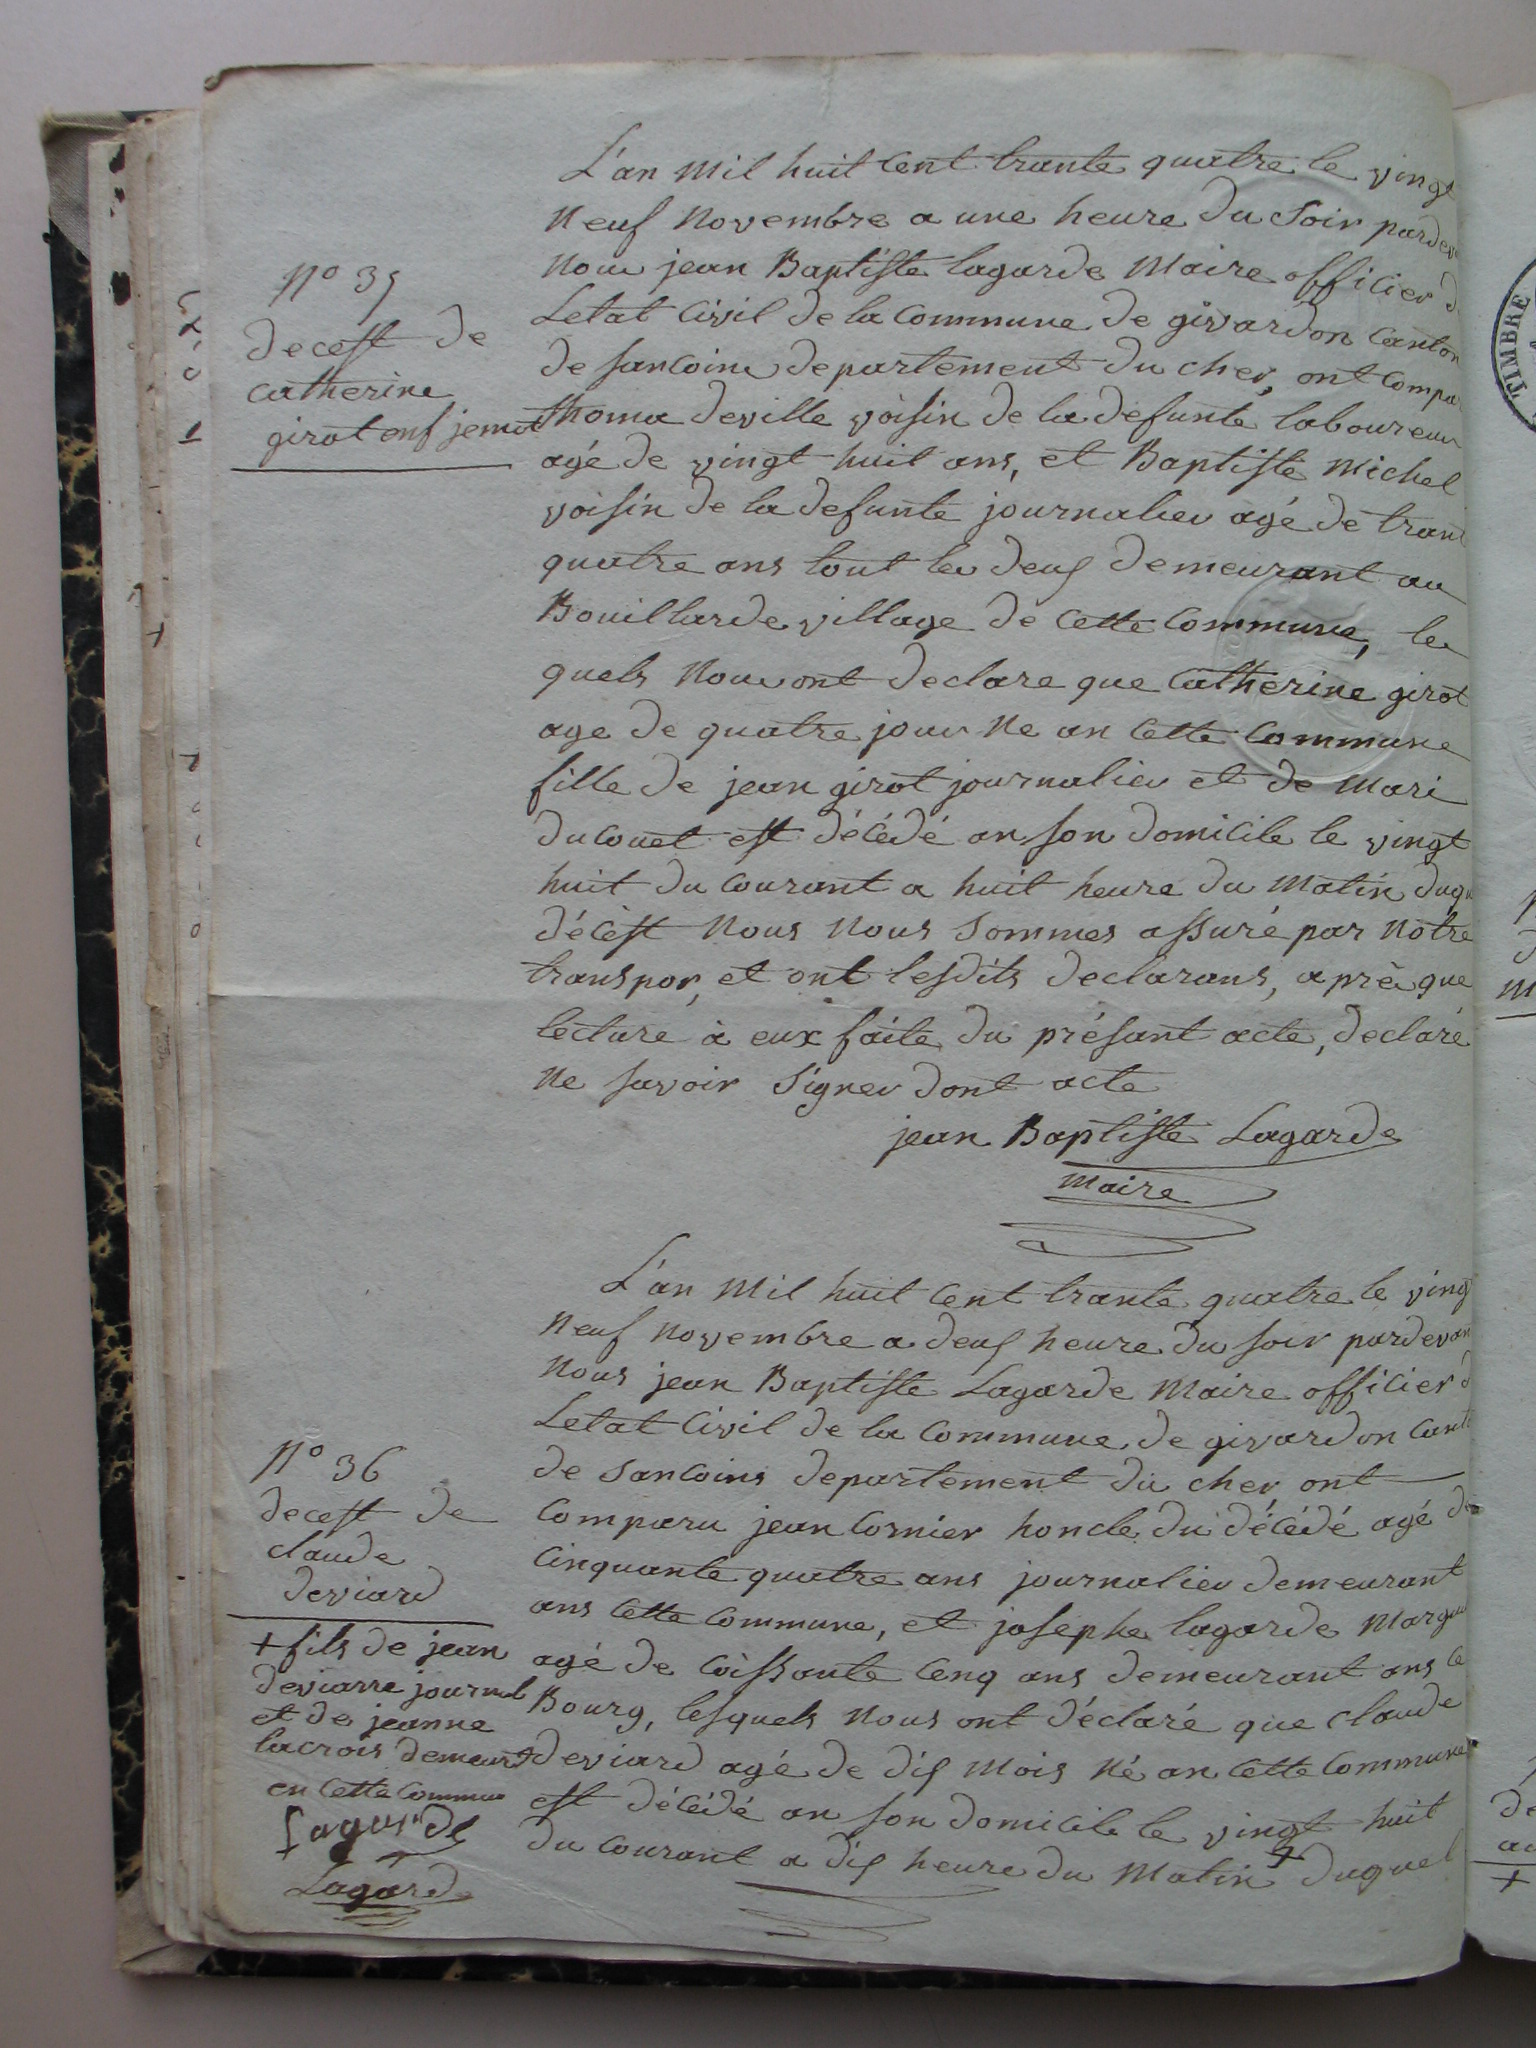 L'an mil huit cent trante quatre le vingt
neuf novembre a une heure du soir pardev
nou jean Baptiste lagarde Maire officier d
Letat Civil de la Commune de givardon Canton
de sancoins departement du cher, ont compa
N° 35
decest de
catherine
girot enf jemot
thoma deville voisin de la defunte laboureur
agé de vingt huit ans, et Baptiste Michel
voisin de la defunte journalier agé de trant
quatre ans tout les deux demeurant au
Bouillarde village de cette Commune, les
quels Nous ont declare que Catherine girot
age de quatre jour Né an Cette Commune
fille de jean girot journalier et de Mari
ducouet est décédé an son domicile le vingt
huit du courant a huit heure du Matin duqu
décèst Nous Nous Sommes assuré par Notre
transpor, et ont lesdits declarans, après que
lecture à eux faite du présant acte, declaré
Ne savoir Signer dont acte
jean Baptiste Lagarde
Maire
L'an Mil huit Cent trante quatre le ving
Neuf Novembre a deux heure du soir pardevan
Nous jean Baptiste Lagarde Maire officier d
Letat Civil de la Commune de givardon Cant
de Sancoins departement du cher ont
N° 36
decest de
claude
deviard
Comparu jean Cornier honcle du décédé agé de
Cinquante quatre ans journalier demeurant
ans Cette Commune, et josephe lagarde Margu
agé de Coissante Cenq ans demeurant ans ce
Bourg, lesquels Nous ont déclaré que claude
deviard agé de dix Mois Né an Cette Commune
est décédé an son domicile le vingt huit
du Courant a dix heure du Matin + duquel
+ fils de jean
deviarre journal
et de jeanne
lacrois demeurt
en Cette Commun
Lagarde
Lagarde
TIMBRE